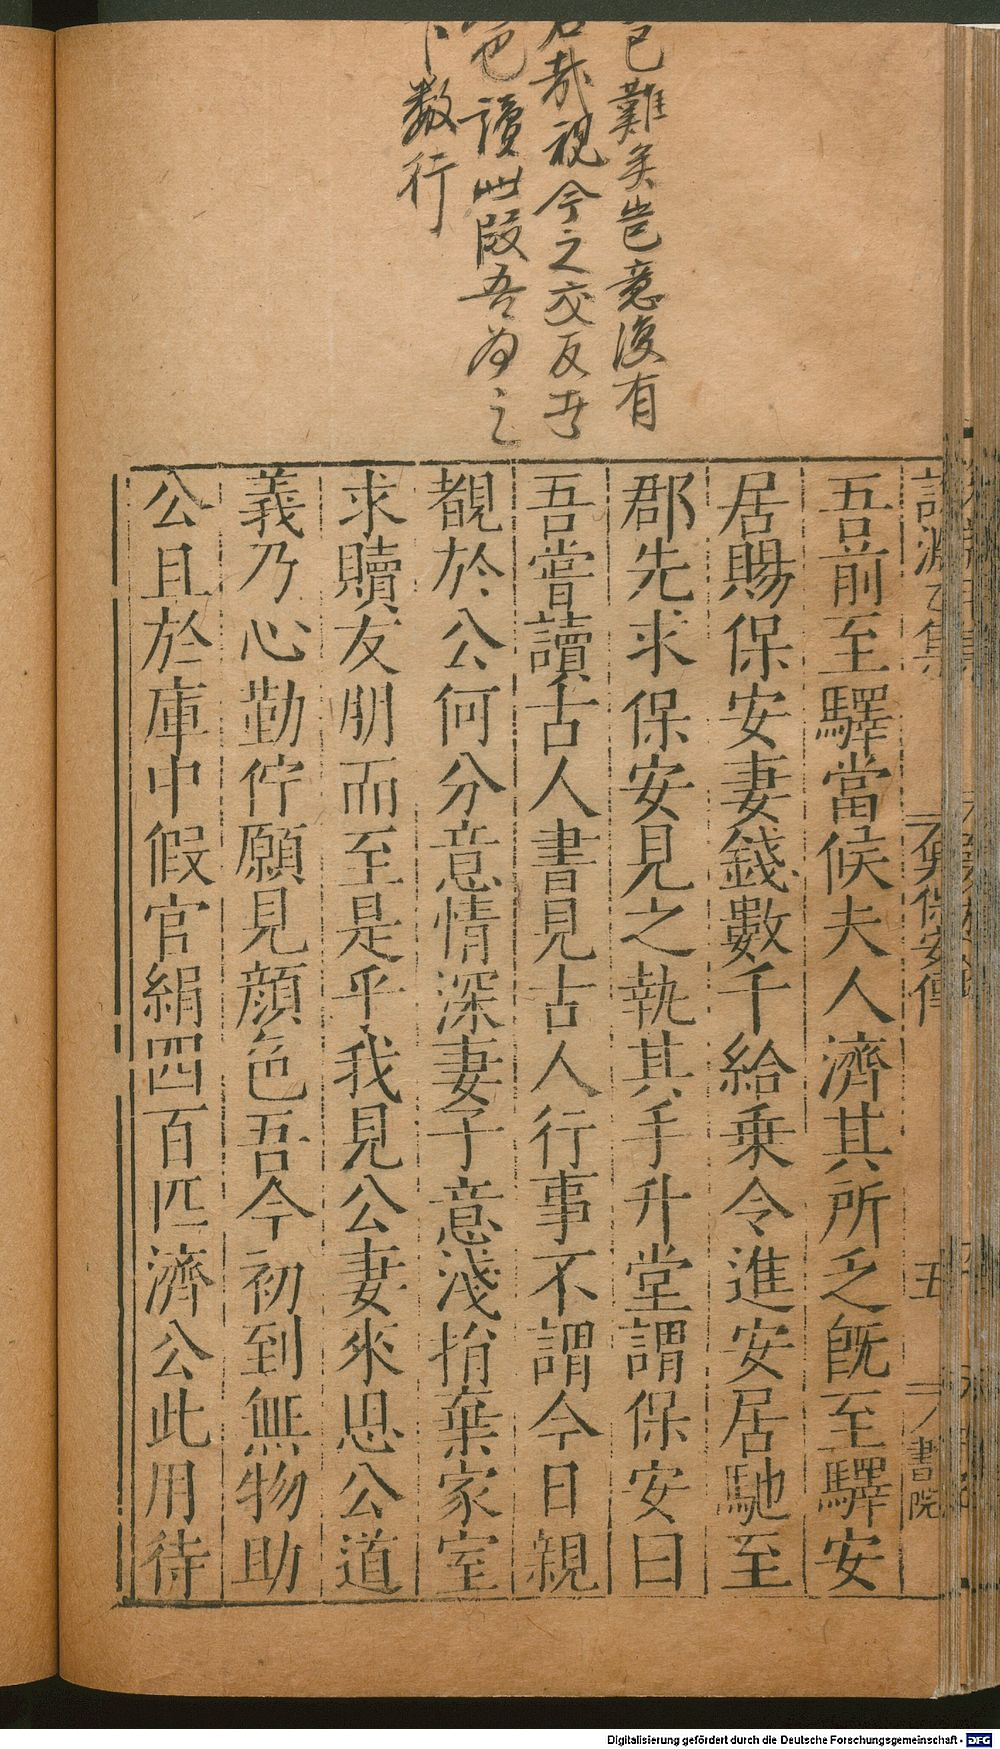 已難矣豈意復有
哉視今之交反吾
讀此段吾爲之
數行
說淵乙集
吳保安傳
五
書院
吾前至驛當候夫人濟其所乏旣至驛安
居賜保安妻錢數千給乗令進安居馳至
郡先求保安見之執其手升堂謂保安曰
吾嘗讀古人書見古人行事不謂今日親
覩於公何分意情深妻子意淺捐棄家室
求贖友朋而至是乎我見公妻來思公道
義乃心勤佇願見顔色吾今初到無物助
公且於庫中假官絹四百匹濟公此用待
Digitalisierung gefördert durch die Deutsche Forschungsgemeinschaft - DFG